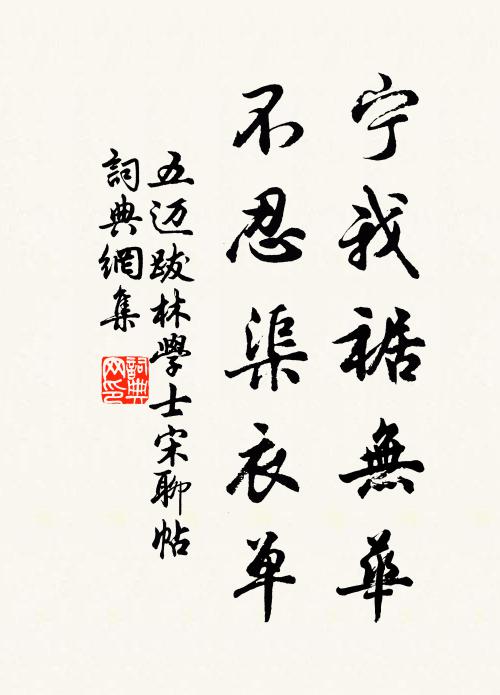 宁我裾無華
不忍渠衣单
五迈跋林學士宋聊帖
詞典網集
詞典网印